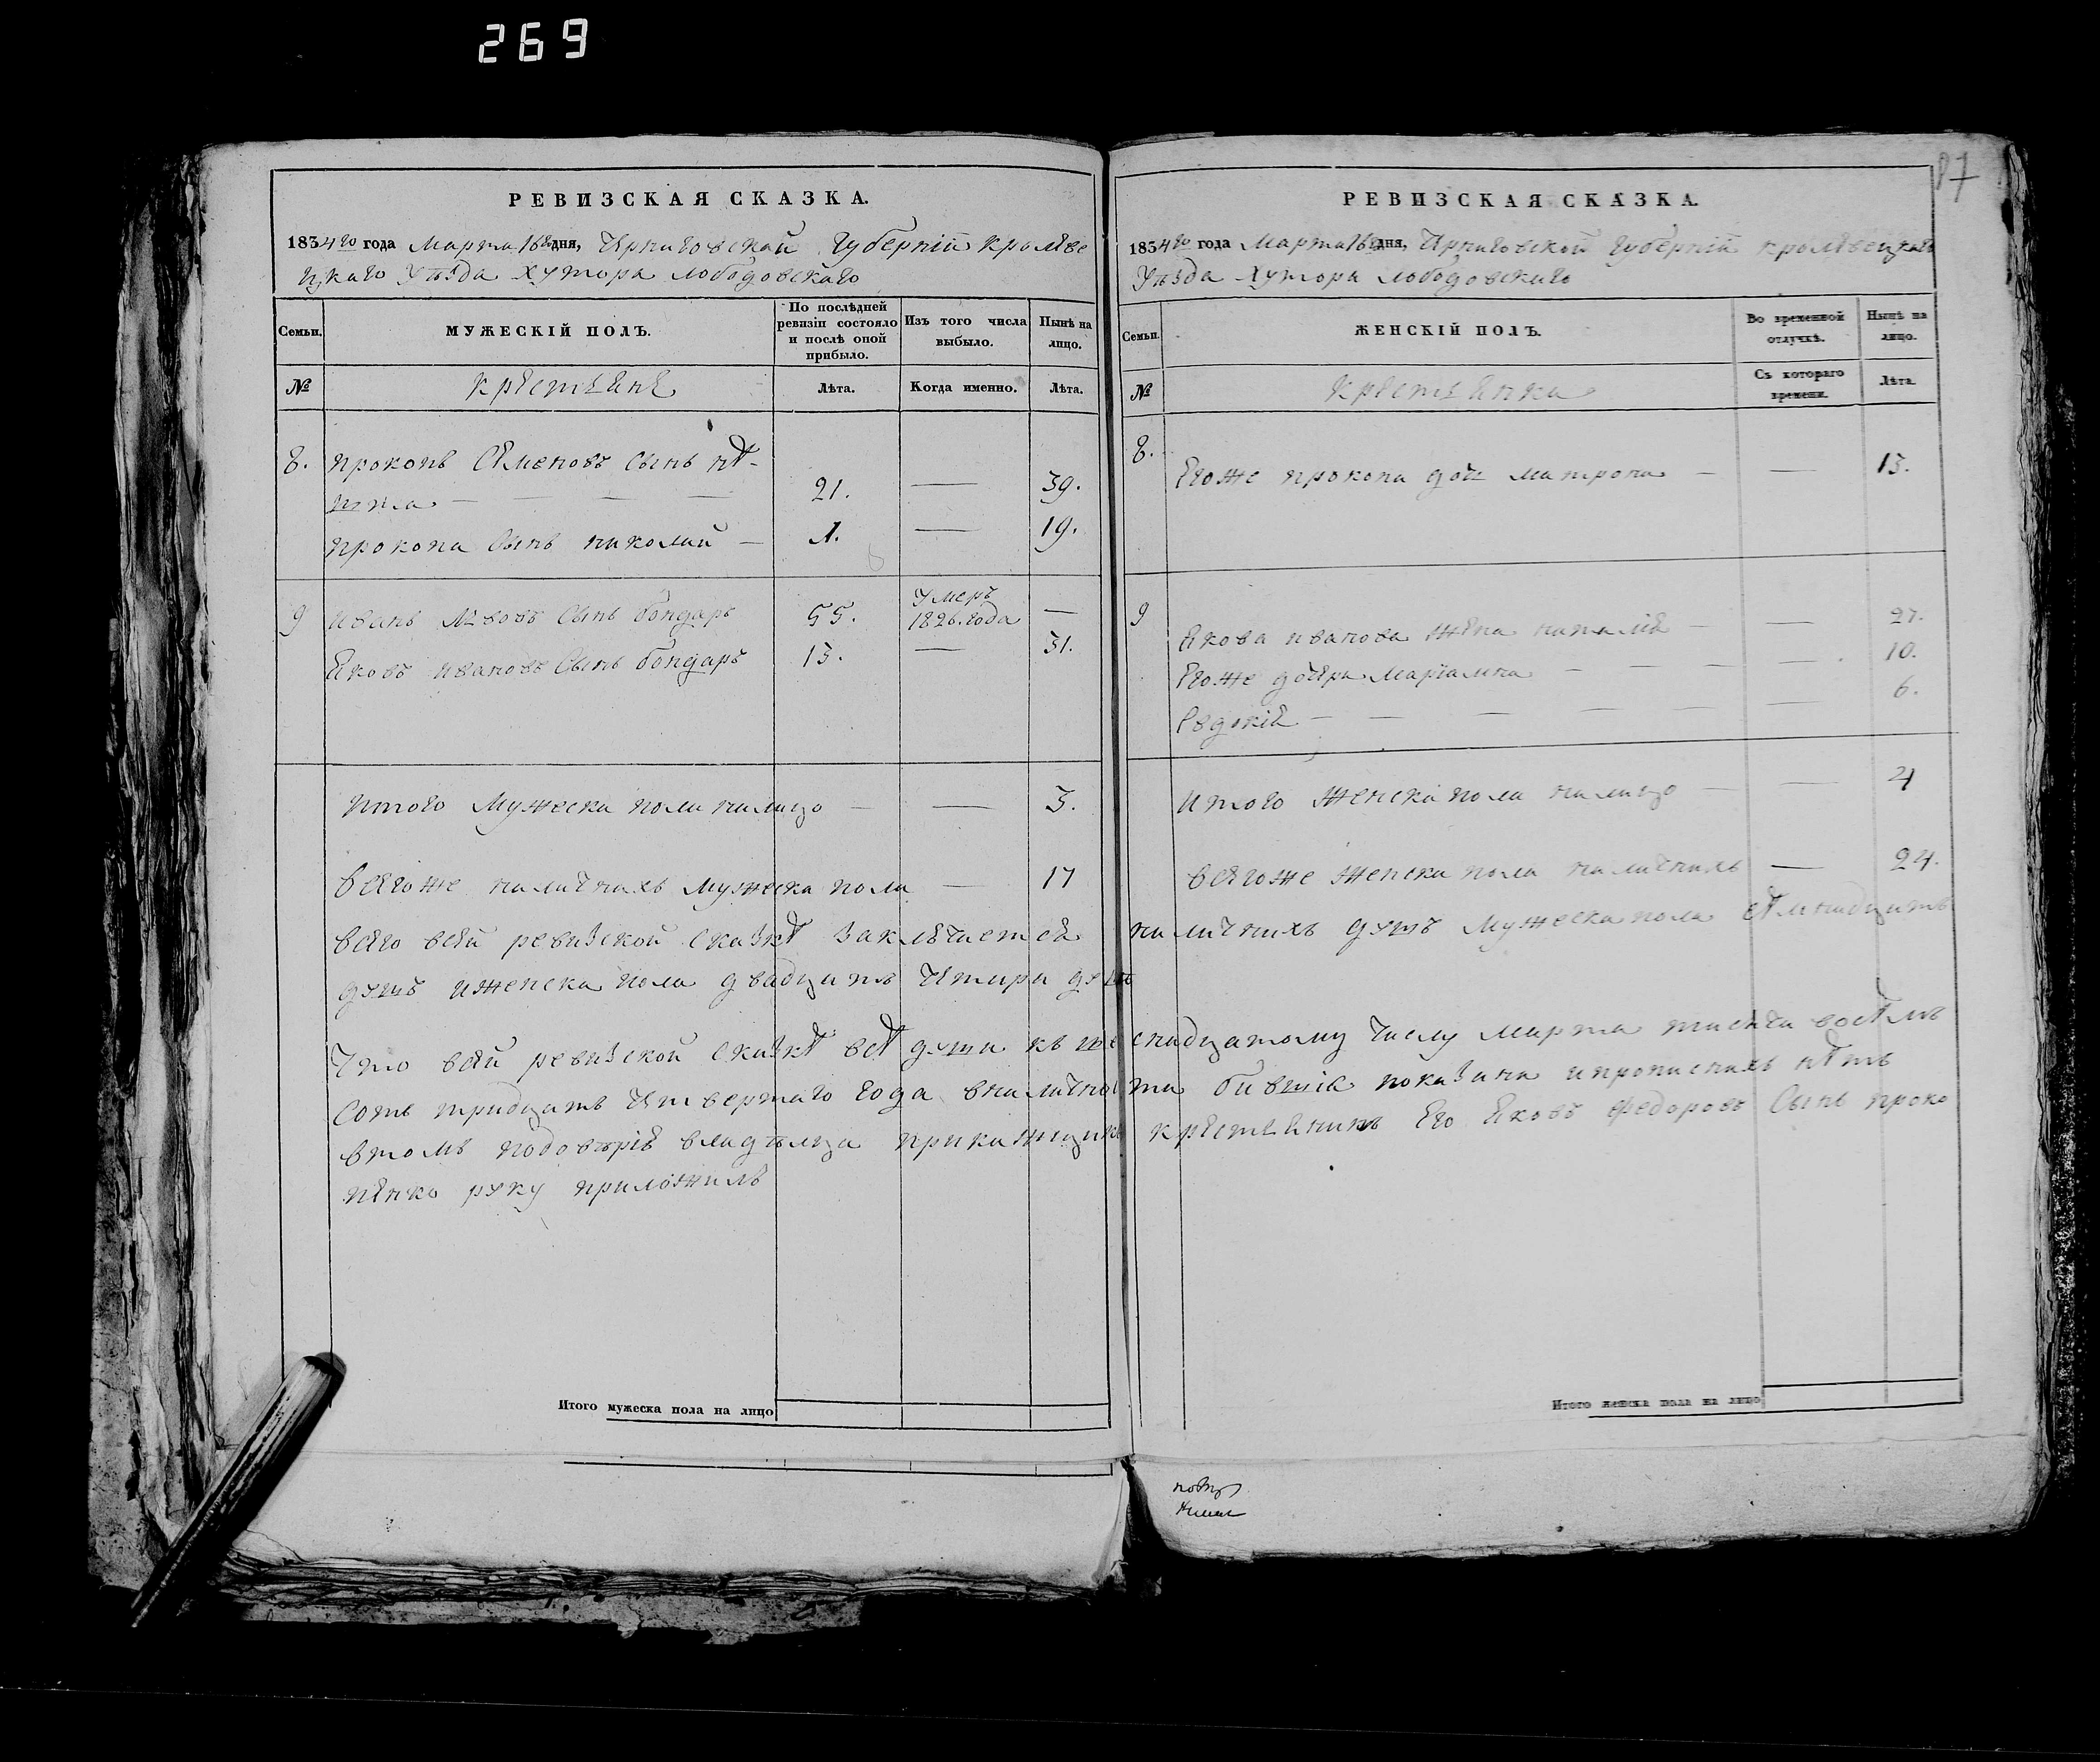 269
87
РЕВИЗСКАЯ СКАЗКА.
1834го года Марта 16го дня, Чрниговской Губерніи Кролѣве
цкаго Уѣзда Хутора Лободовскаго
Семьи.
МУЖЕСКІЙ ПОЛЪ.
По послѣдней ревизіи состояло и послѣ оной прибыло.
Изъ того числа выбыло.
Нынѣ на лицо.
№
Крестьяне
Лѣта.
Когда именно.
Лѣта.
8. Прокопъ Семеновъ Сынъ
21. — 39.
Прокопа Сынъ Николай — 1. — 19.
9 Иванъ Сынъ бондарь 55. Умеръ 1826. года —
Яковъ Ивановъ Сынъ бондарь 13. — 31.
Итого Мужеска пола налицо — — 3.
Всегоже наличнихъ Мужеска пола — 17
РЕВИЗСКАЯ СКАЗКА.
1834го года Марта 16го дня, Чрниговской Губерніи Кролѣвецкаго
Уѣзда Хутора Лободовскаго
Семьи.
ЖЕНСКІЙ ПОЛЪ.
Во временной отлучкѣ.
Нынѣ на лицо.
№
Крестьянка
Съ котораго времени.
Лѣта.
8. Егоже Прокопа дочь Матрона — — 13.
9 Якова Иванова Жена Наталія — — 27.
Егоже дочери Маріамна — — — — 10.
Евдокія — — — — — — 6.
Итого Женска пола налицо — — 4
Всегоже Женска пола наличнихъ — 24.
Всего всей ревизской сказкѣ заключается наличнихъ душъ Мужеска пола семнадцать
душъ иженска пола двадцать Чтири душъ
Что всей ревизской сказкѣ всѣ души къ шеснадцатому Числу Марта тисяча восѣмъ
Сотъ тридцать Чтвертаго года вналичности бившіе показани ипрописнихъ нѣтъ
втомъ подовѣріе владѣлца прикажщикъ крестьянинъ Его Яковъ Федоровъ Сынъ Проко
пенко руку приложилъ
Итого мужеска пола на лицо
Итого женска пола на лицо